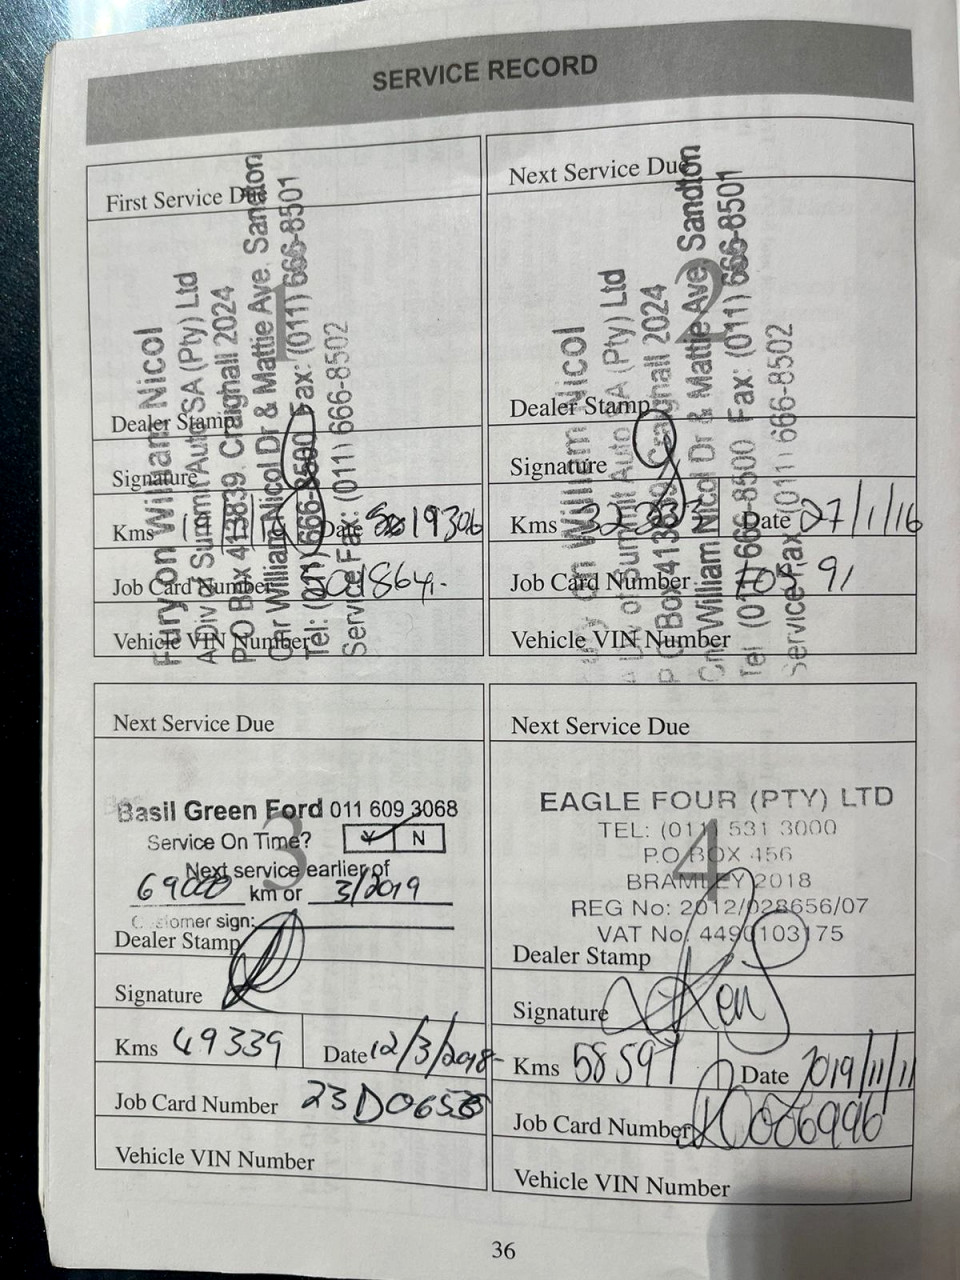 SERVICE RECORD
First Service Due
1
Furyon William Nicol
A Div of Summit Auto SA (Pty) Ltd
P O Box 413839, Craighall 2024
Cnr William Nicol Dr & Mattie Ave, Sandton
Tel: (011) 666-8500 Fax: (011) 666-8501
Service Fax: (011) 666-8502
Dealer Stamp
Signature
Kms Date 19306
Job Card Number
Vehicle VIN Number
Next Service Due
2
William Nicol
A Div of Summit Auto SA (Pty) Ltd
P O Box 413839 Craighall 2024
Cnr William Nicol Dr & Mattie Ave, Sandton
Tel (011) 666-8500 Fax: (011) 666-8501
Service Fax (011) 666-8502
Dealer Stamp
Signature
Kms Date 27/1/16
Job Card Number
Vehicle VIN Number
Next Service Due
3
Basil Green Ford 011 609 3068
Service On Time? Y N
Next service earlier of
69000 km or 3/2019
Customer sign:
Dealer Stamp
Signature
Kms 49339 Date 12/3/2018
Job Card Number
Vehicle VIN Number
Next Service Due
4
EAGLE FOUR (PTY) LTD
TEL: (011) 531 3000
P.O BOX 456
BRAMLEY 2018
REG No: 2012/028656/07
VAT No. 4490103175
Dealer Stamp
Signature
Kms 58597 Date 2019/11/11
Job Card Number
Vehicle VIN Number
36